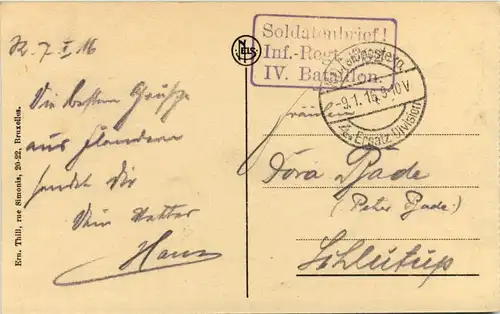 Soldatenbrief!
Inf.-Regt.
IV. Bataillon.
-9.1.16.9-10V
4. Ersatz Division
NELS
7. I. 16
Die besten Grüße
aus Flandern
sendet Dir
Dein Vetter
Hans
Fräulein
Dora Bade
(Peter Bade)
Schlutup
Ern. Thill, rue Simonis, 20-22, Bruxelles.